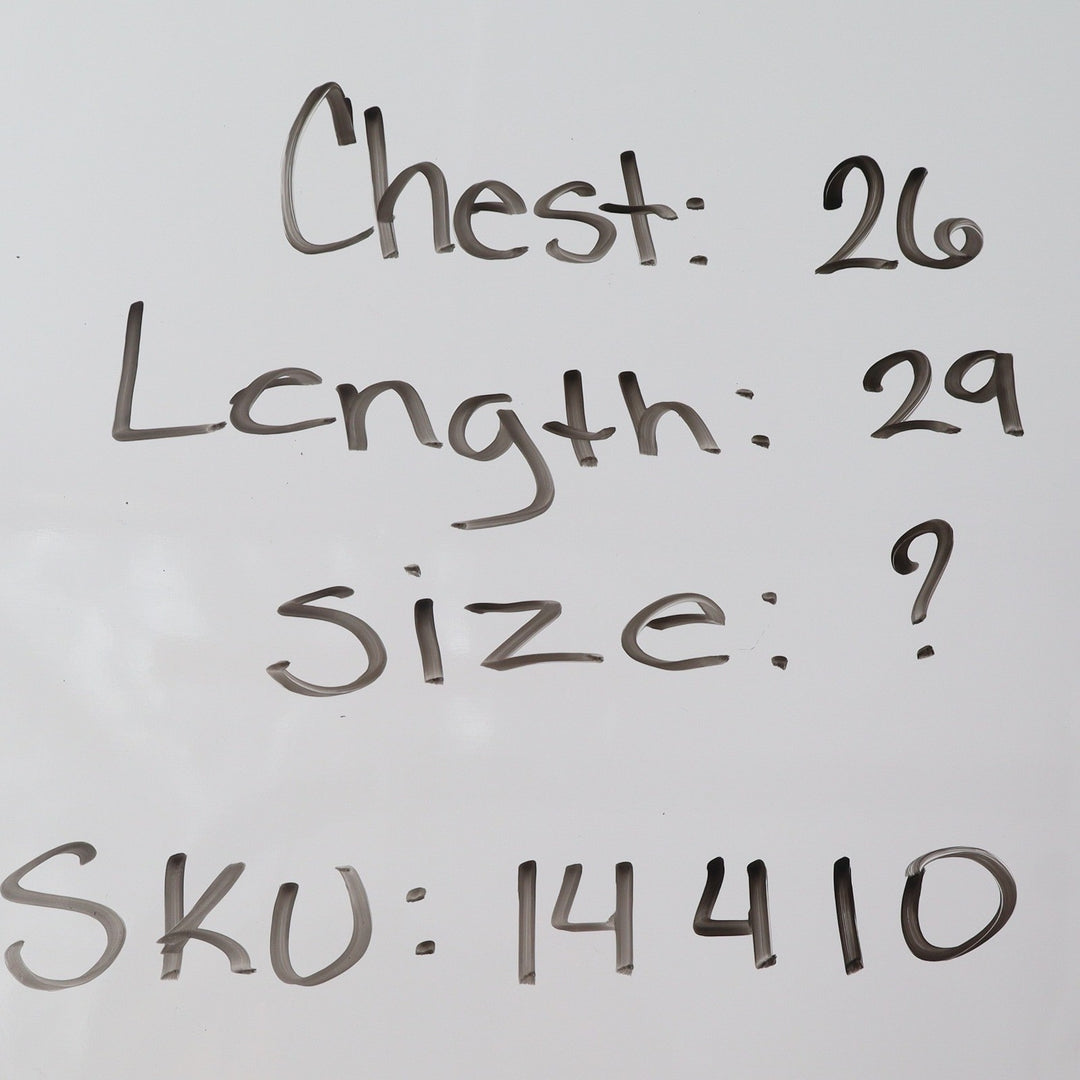 Chest: 26
Length: 29
Size: ?
SKU: 14410